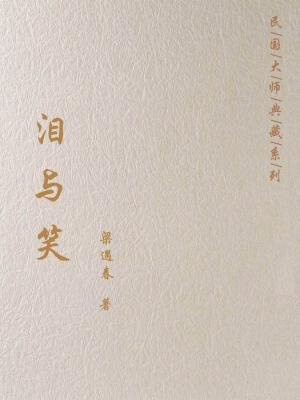 民|国|大|师|典|藏|系|列
泪与笑
梁遇春 著